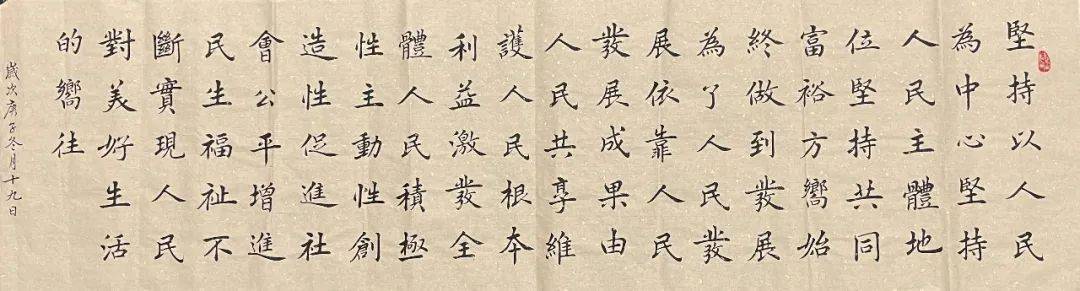 堅持以人民
為中心堅持
人民主體地
位堅持共同
富裕方嚮始
終做到發展
為了人民發
展依靠人民
發展成果由
人民共享維
護人民根本
利益激發全
體人民積極
性主動性創
造性促進社
會公平增進
民生福祉不
斷實現人民
對美好生活
的嚮往
歲次庚子冬月十九日